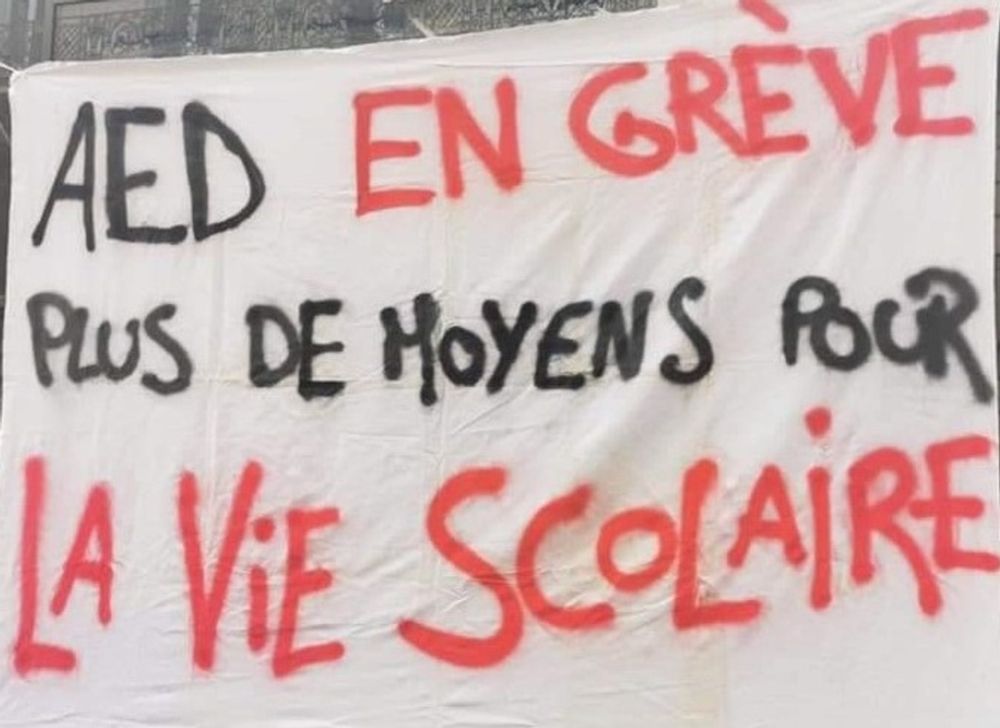 AED EN GRÈVE
PLUS DE MOYENS POUR
LA ViE SCOLAiRE